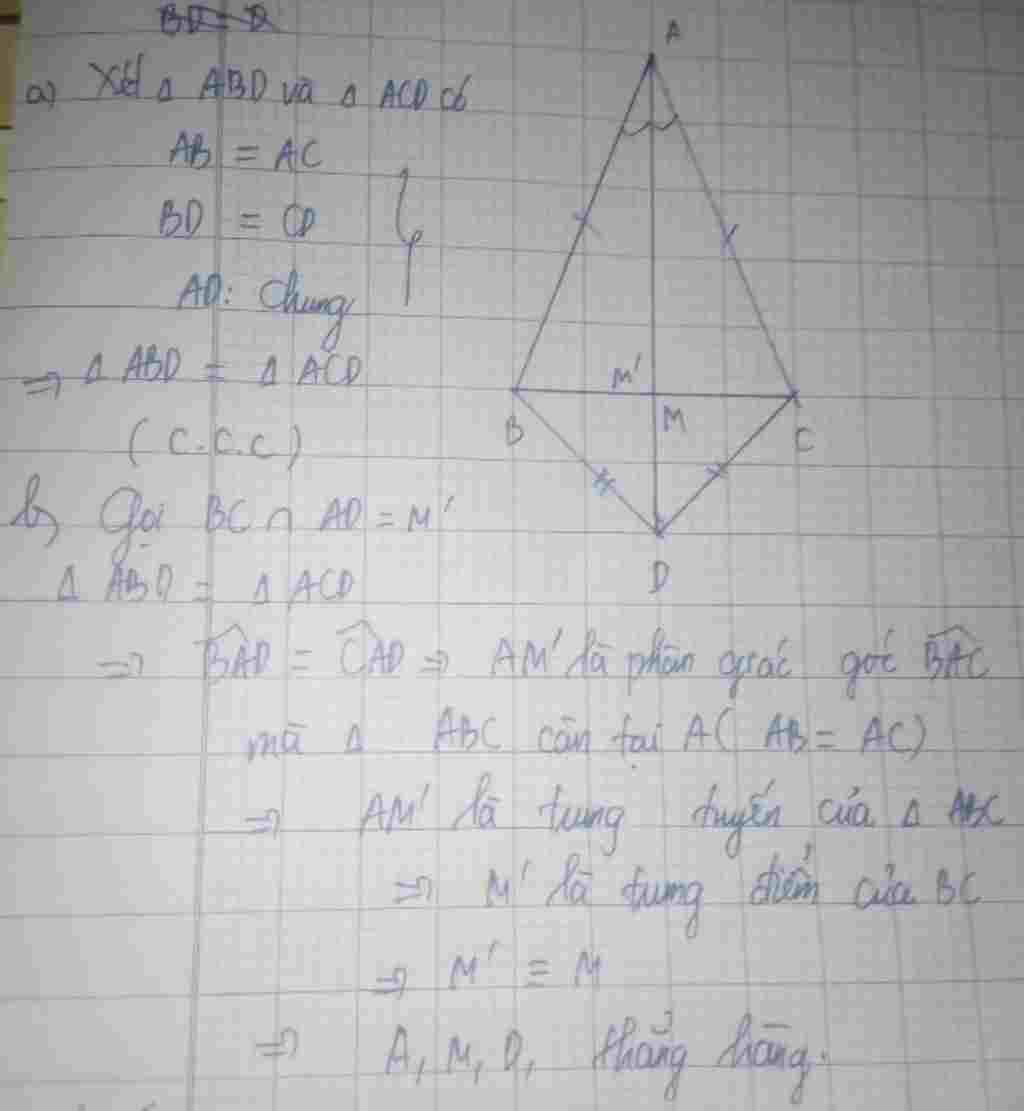 a) Xét Δ ABD và Δ ACD có
AB = AC
BD = CD
AD: Chung
=> Δ ABD = Δ ACD
(C.C.C)
b, Gọi BC ∩ AD = M'
Δ ABD = Δ ACD
=> BAD = CAD => AM' là phân giác góc BAC
mà Δ ABC cân tại A( AB = AC)
=> AM' là trung tuyến của Δ ABC
=> M' là trung điểm của BC
=> M' ≡ M
=> A, M, D, thẳng hàng.
A
M'
B
M
C
D